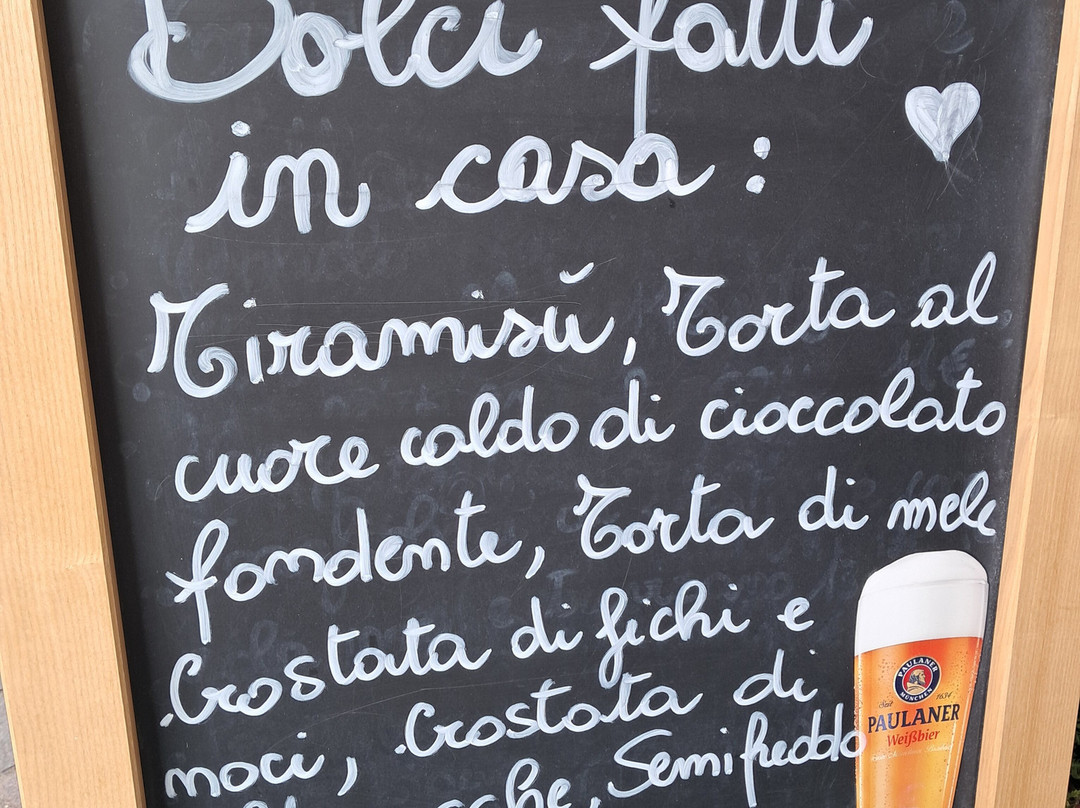 Dolci fatti
in casa:
Tiramisù, Torta al
cuore caldo di cioccolato
fondente, Torta di mele
Crostata di fichi e
noci, Crostata di
Semifreddo
PAULANER
MÜNCHEN
Seit 1634
PAULANER
Weißbier